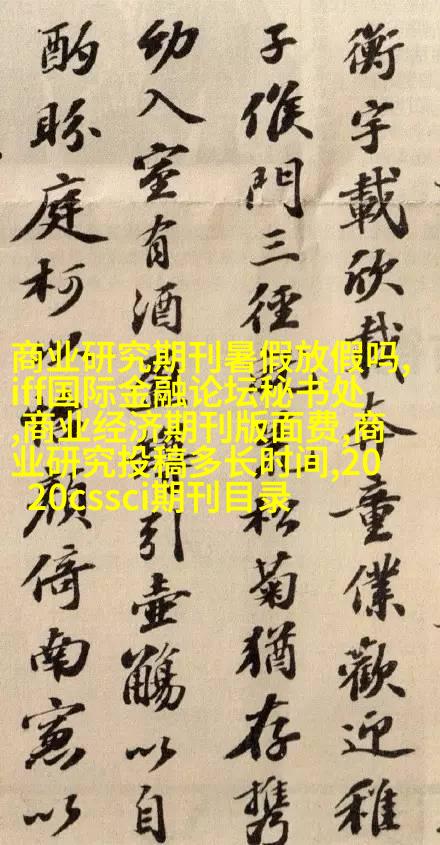 衡宇載欣載奔童僕歡迎稚
子候門三徑松菊猶存攜
幼入室有酒盈樽引壺觴以自
酌眄庭柯以顏倚南窻以
商业研究期刊暑假放假吗,
iff国际金融论坛秘书处
,商业经济期刊版面费,商
业研究投稿多长时间,20
20cssci期刊目录